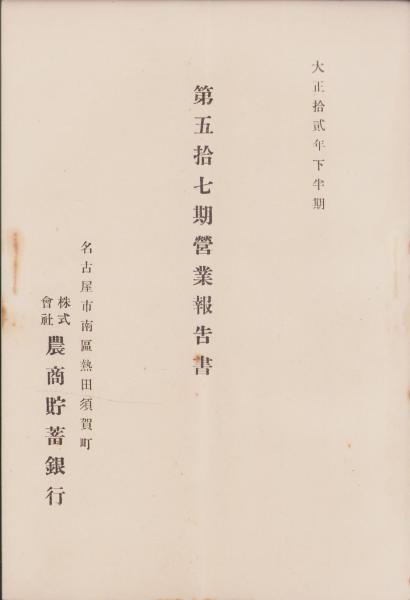 大正拾貳年下半期
第五拾七期營業報告書
名古屋市南區熱田須賀町
株式會社 農商貯蓄銀行